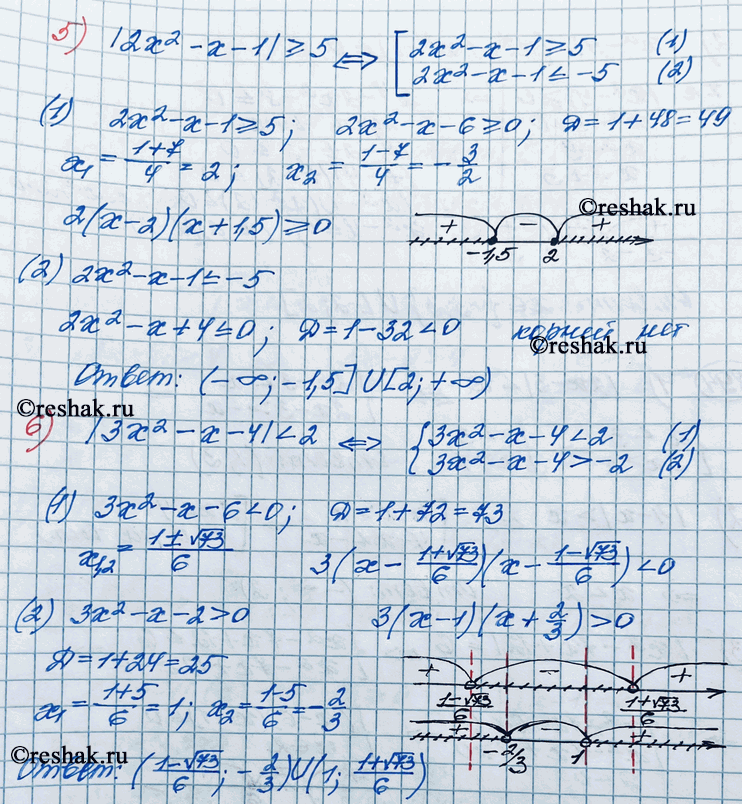 5) |2x² - x - 1| ≥ 5 ⟺ [ 2x² - x - 1 ≥ 5 (1)
2x² - x - 1 ≤ -5 (2)
(1) 2x² - x - 1 ≥ 5; 2x² - x - 6 ≥ 0; D = 1 + 48 = 49
x₁ = (1+7)/4 = 2; x₂ = (1-7)/4 = -3/2
2(x-2)(x+1,5) ≥ 0
©reshak.ru
+ - +
-1,5 2
(2) 2x² - x - 1 ≤ -5
2x² - x + 4 ≤ 0; D = 1 - 32 < 0 корней нет
©reshak.ru
Ответ: (-∞; -1,5] U [2; +∞)
©reshak.ru
6) |3x² - x - 4| < 2 ⟺ { 3x² - x - 4 < 2 (1)
3x² - x - 4 > -2 (2)
(1) 3x² - x - 6 < 0; D = 1 + 72 = 73
x₁,₂ = (1±√73)/6 3(x - (1+√73)/6)(x - (1-√73)/6) < 0
(2) 3x² - x - 2 > 0 3(x-1)(x + 2/3) > 0
D = 1 + 24 = 25
+ - +
x₁ = (1+5)/6 = 1; x₂ = (1-5)/6 = -2/3
(1-√73)/6 (1+√73)/6
+ - +
-2/3 1
©reshak.ru
Ответ: ((1-√73)/6; -2/3) U (1; (1+√73)/6)
©reshak.ru